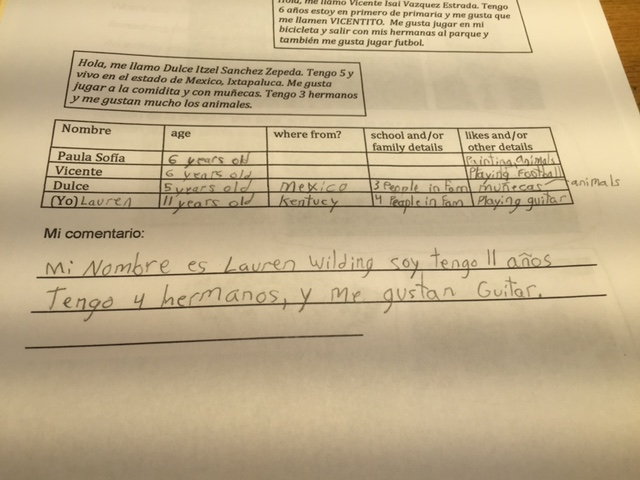 Hola, me llamo Vicente Isai Vazquez Estrada. Tengo
6 años estoy en primero de primaria y me gusta que
me llamen VICENTITO. Me gusta jugar en mi
bicicleta y salir con mis hermanas al parque y
también me gusta jugar futbol.
Hola, me llamo Dulce Itzel Sanchez Zepeda. Tengo 5 y
vivo en el estado de Mexico, Ixtapaluca. Me gusta
jugar a la comidita y con muñecas. Tengo 3 hermanos
y me gustan mucho los animales.
Nombre age where from? school and/or family details likes and/or other details
Paula Sofía 6 years old Painting, animals
Vicente 6 years old Playing Football
Dulce 5 years old Mexico 3 People in Fam muñecas animals
(Yo) Lauren 11 years old Kentucy 4 People in Fam Playing guitar
Mi comentario:
Mi Nombre es Lauren Wilding soy tengo 11 años
Tengo 4 hermanos, y me gustan Guitar.